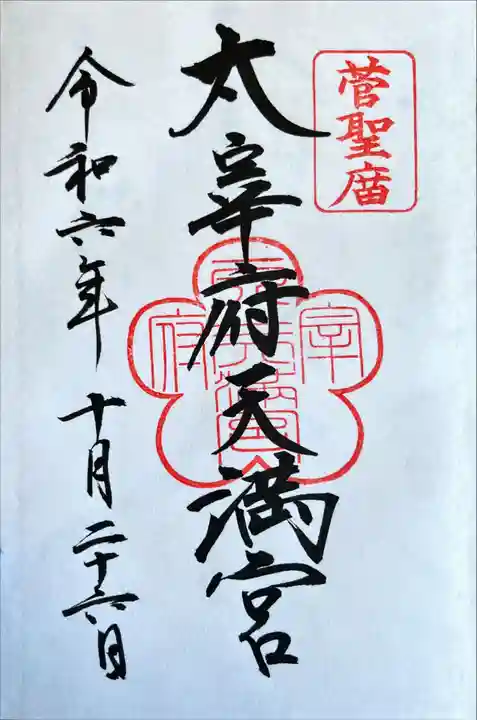 菅聖庿
太宰府天満宮
令和六年 十月二十六日